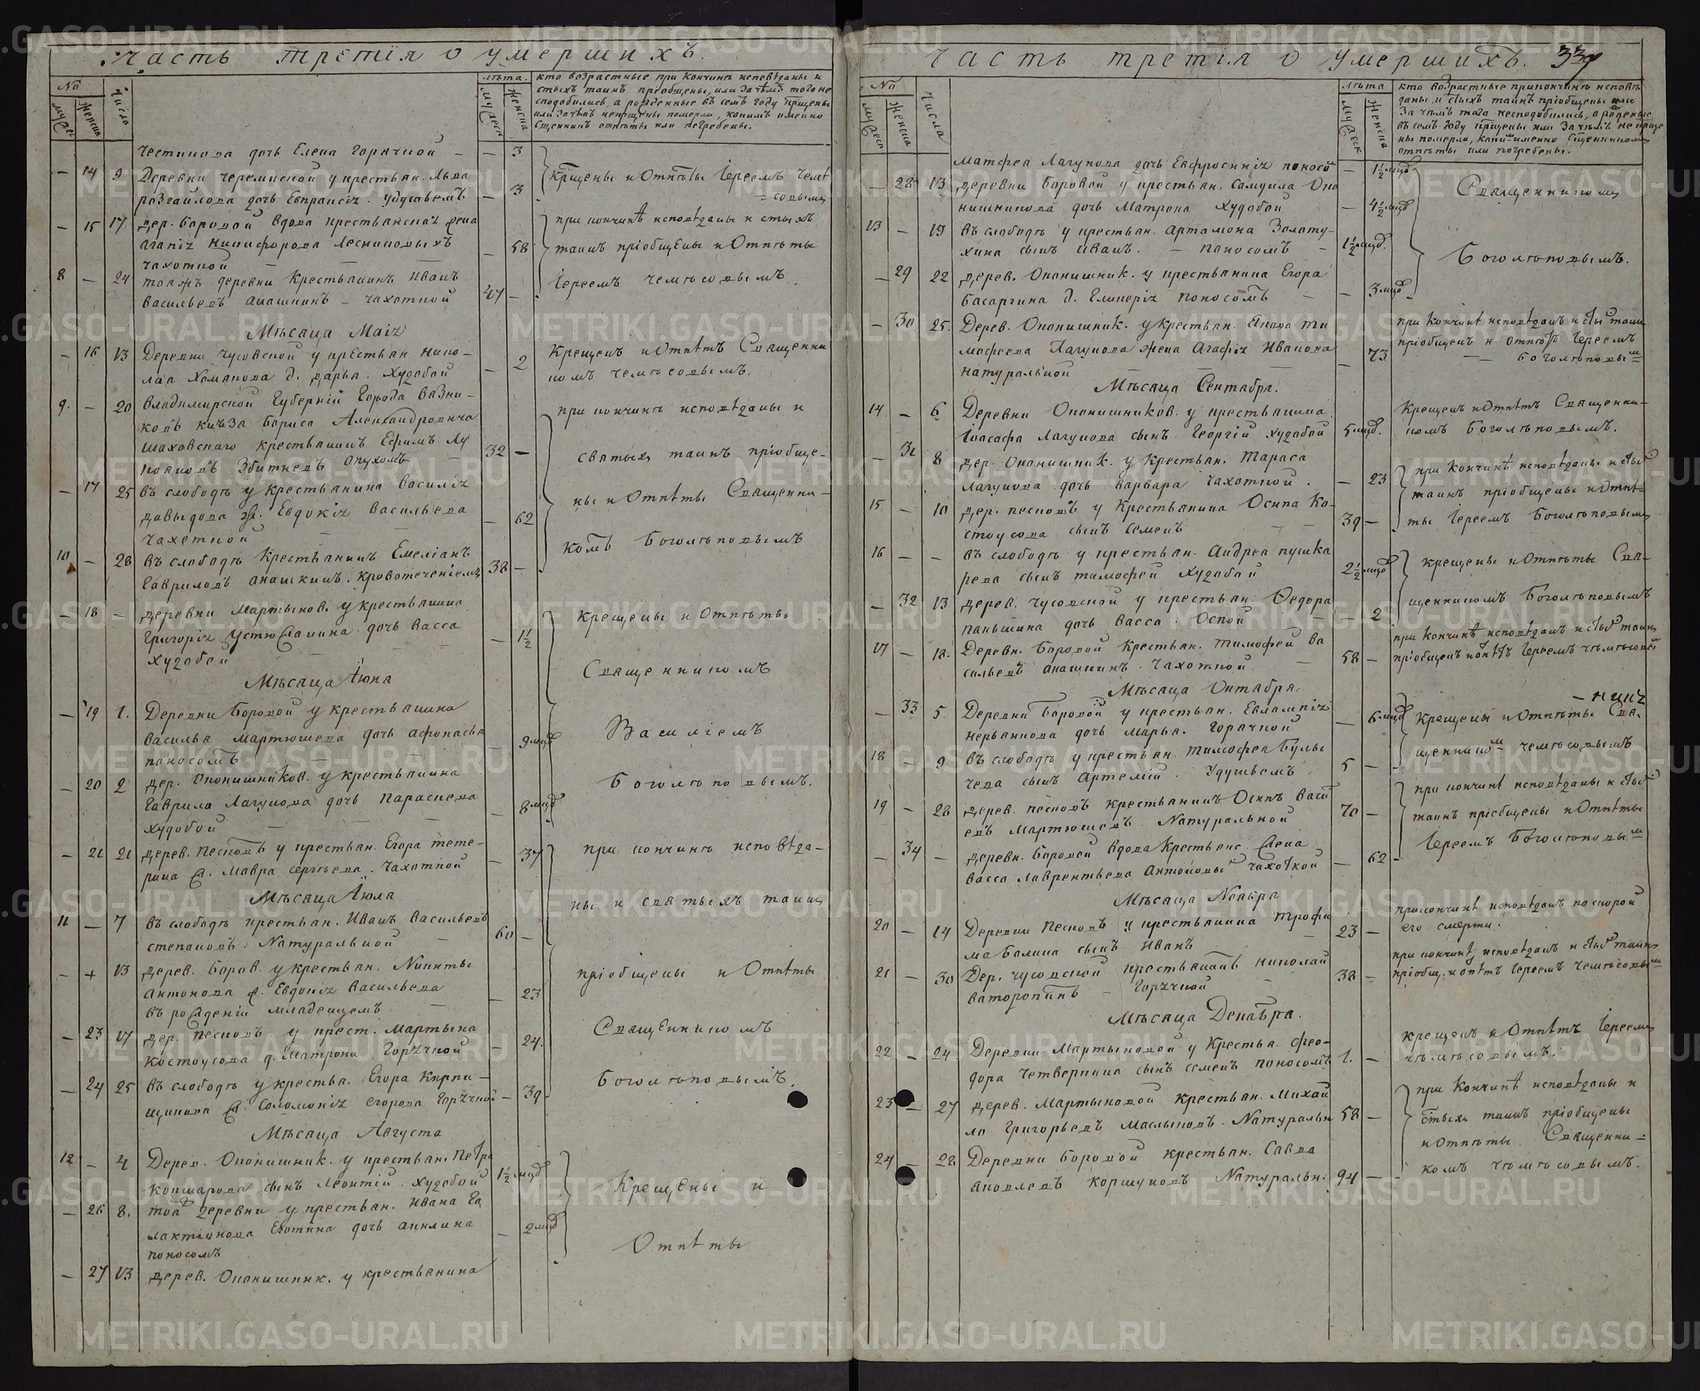 Часть третія о умершихъ.
№
муж.
женска
число
лѣта
мужеск
женска
кто возрастные при кончинѣ исповѣданы и
стыхъ таинъ пріобщены, или зачѣмъ того не
сподобились, а рожденные въ семъ году крщены
или зачѣмъ некрщены померли, какимъ имянно
сщенникъ отпѣты или погребены.
дочь Елена Горячкой — — 3
— 14 9 Деревни Черемиской у крестьян. Льва
дочь Удушьемъ — 3
крщены и Отпѣты Іереемъ Чемѣ
= содымъ
— 15 17. дер. Боровой вдова крестьянская жена
Агапія Никифорова Лесниковыхъ — 58
чахоткой
при кончинѣ исповѣданы и стыхъ
таинъ пріобщены и Отпѣты
Іереемъ Чемѣсодымъ.
8 — 24 тояжъ деревни Крестьянинъ Иванъ
Васильевъ Анашкинъ — чахоткой 47 —
Мѣсяца Маія
— 16 13 Деревни Чусовской у крестьян Нико-
лая Хомякова д. Дарья. Худобой — 2
Крещенъ и Отпѣтъ Священни
комъ Чемѣсодымъ.
9. — 20 Владимирской Губерніи Города Вязни-
ковъ князя Бориса Александровича
Шаховскаго крестьянинъ Ефимъ Лу
Збитневъ Опухомъ 32 —
при кончинѣ исповѣданы и
святыхъ таинъ пріобще-
ны и Отпѣты Священни-
комъ Боголѣповымъ
— 17 25 въ слободѣ у крестьянина Василія
Давыдова ж. Евдокія Васильева — 62
Чахоткой
10 — 28 въ слободѣ Крестьянинъ Емеліанъ
Гавриловъ Анашкинъ. Кровотеченіемъ 38 —
— 18 — деревни Мартынов. у крестьянина
Григорія Устюжанина дочь Васса — 1½
Худобой
Крещены и Отпѣты
Священникомъ
Василіемъ
Боголѣповымъ.
Мѣсяца Іюня
— 19 1. Деревни Боровой у крестьянина
Василья Мартюшева дочь Афонасья — 9 мцов
поносомъ
— 20 2 дер. Опонишников. у крестьянина
Гаврила Лагунова дочь Параскева — 8 мцов
Худобой
— 21 21 дерев. Песковъ у крестьян. Егора Тете-
рина ж. Мавра Сергѣева. Чахоткой — 37
при кончинѣ исповѣда-
ны и святыхъ таинъ
пріобщены и Отпѣты
Священникомъ
Боголѣповымъ.
Мѣсяца Іюля
11 — 7 въ слободѣ крестьян. Иванъ Васильевъ
Степановъ. Натуральной 60 —
— + 13 дерев. Боров. у крестьян. Никиты
Антонова ж. Евдокія Васильева — 23
въ рожденіи младенцемъ
— 23 17 дер. Песковъ у крест. Мартына
Костоусова д. Матрона Горячкой — 24
— 24 25 въ слободѣ у крестья. Егора Кирпи-
щикова ж. Соломонія Егорова Горячкой — 39
Мѣсяца Августа
12 — 4 Дерев. Опонишник. у крестьян. Петра
Копшарова сынъ Леонтій. Худобой 1½ мцов
Крещены и
Отпѣты
— 26 8. той деревни у крестьян. Ивана Га
лактіонова дочь Акилина — 2 мцов
поносомъ
— 27 13 дерев. Опонишник. у крестьянина
Часть третія о умершихъ. 337
№
мужеск
женска
числа
лѣта
мужеск
женска
кто возрастные прикончинѣ исповѣ
даны и стыхъ таинъ пріобщены или
зачѣмъ того несподобились, а рожденые
въ семъ году крщены или зачѣмъ некрще
ны померли, какимъ имянно Сщенникомъ
отпѣты или погребены.
Матфея Лагунова дочь Евфросинія поносо — 1½ мцов
— 28 13 деревни Боровой у крестьян. Самуила Опо
нишникова дочь Матрона Худобой — 4½ мцов
Священникомъ
Боголѣповымъ.
13 — 19 въ слободѣ у крестьян. Артамона Золоту-
хина сынъ Иванъ. — поносомъ — 1½ мцов
— 29 22 дерев. Опонишник. у крестьянина Егора
Басаргина д. Гликерія поносомъ — 3 мцов
— 30 25. Дерев. Опонишник. у крестьян. Якова Ти
мофеева Лагунова жена Агафія Иванова — 73
натуральной
при кончинѣ исповѣданъ и стых таинъ
пріобщенъ и отпѣтъ Іереемъ
Боголѣповымъ
Мѣсяца Сентября.
14. — 6 Деревни Опонишников. у крестьянина
Іоасафа Лагунова сынъ Георгій Худобой 5 мцов.
Крещенъ и Отпѣтъ Священни-
комъ Боголѣповымъ.
— 31 8 дер. Опонишник. у крестьян. Тараса
Лагунова дочь Варвара Чахоткой. — 23
при кончинѣ исповѣданы и стых
таинъ пріобщены и Отпѣ-
ты Іереемъ Боголѣповымъ
15 — 10 дер. Песковъ у Крестьянина Осипа Ко-
стоусова сынъ Семенъ 39 —
16 — — въ слободѣ у крестьян. Андрея Пушка
рева сынъ Тимофей Худобой 2½ мцов
крещены и Отпѣты Свя-
щенникомъ Боголѣповымъ
— 32 13 дерев. Чусовской у крестьян. Федора
Паньшина дочь Васса. Оспой — 2
17 — 18. Деревн. Боровой Крестьян. Тимофей Ва
сильевъ Анашкинъ. Чахоткой 58 —
при кончинѣ исповѣданъ и стых таинъ
пріобщенъ и отпѣтъ Іереемъ Чемѣсодым
Мѣсяца Октября.
— 33 5. Деревни Боровой у крестьян. Евлампія
дочь Марья. Горячкой — 6 мцов
Крещены и Отпѣты Свя-
щенником Чемѣсодымъ
18 — 9 въ слободѣ у крестьян. Тимофея Булы
чева сынъ Артемій. Удушьемъ 5 —
19 — 28 дерев. Песковъ крестьянинъ Осипъ Васил
евъ Мартюшевъ. Натуральной 70 —
при кончинѣ исповѣданы и стых
таинъ пріобщены и Отпѣты
Іереемъ Боголѣповым
— 34 — деревн. Боровой вдова Крестьянс. жена
Васса Лаврентьева Антоновы Чахоткой — 62
Мѣсяца Ноября
20 — 14 Деревни Песковъ у крестьянина Трофи
ма Балина сынъ Иванъ 23 —
прикончинѣ исповѣданъ по скорой
его смерти.
21 — 30 Дер. Чусовской крестьянинъ Николай
Ваторопинъ Горячкой 38 —
при кончинѣ исповѣданъ и стых таинъ
пріобщ. и отпѣтъ Іереемъ Чемѣсодым
Мѣсяца Декабря.
22 — 24 Деревни Мартыновой у Крестья. Фео-
дора Четверкина сынъ Семенъ поносомъ 1. —
крещенъ и Отпѣтъ Іереемъ
Чемѣсодымъ.
23 — 27 дерев. Мартыновой крестьян. Михай
ло Григорьевъ Масльковъ. Натуральн 58 —
при Кончинѣ исповѣданы и
стыхъ таинъ пріобщены
и Отпѣты Священни-
комъ Чемѣсодымъ.
24 — 28 Деревни Боровой крестьян. Савва
Яковлевъ Коршуновъ Натуральн. 94 —
METRIKI.GASO-URAL.RU